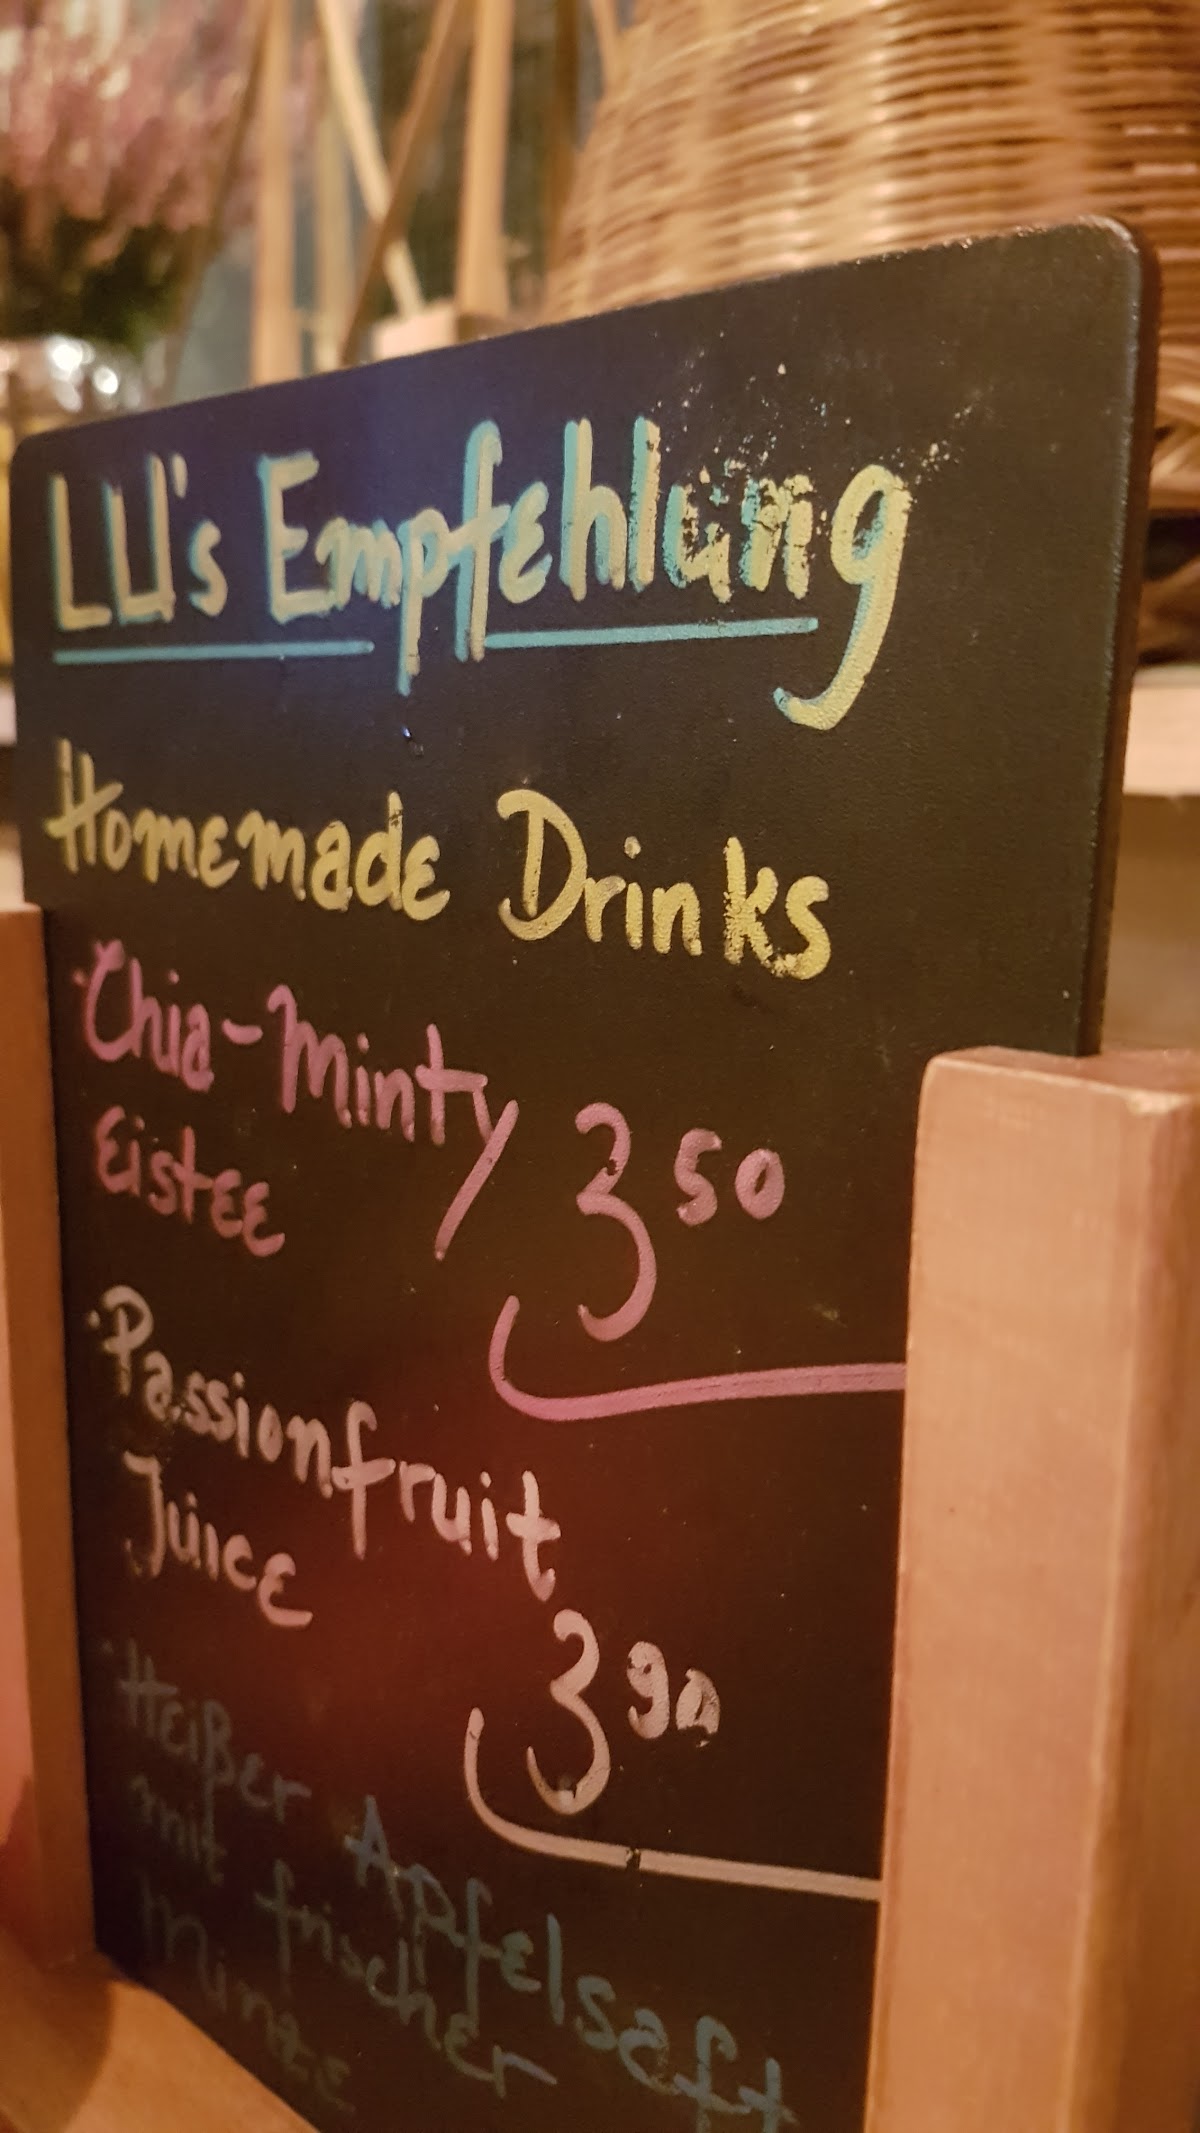 LU's Empfehlung
Homemade Drinks
·Chia-Minty
Eistee
3 50
·Passionfruit
Juice
3 90
·Heißer Apfelsaft
mit frischer
Minze